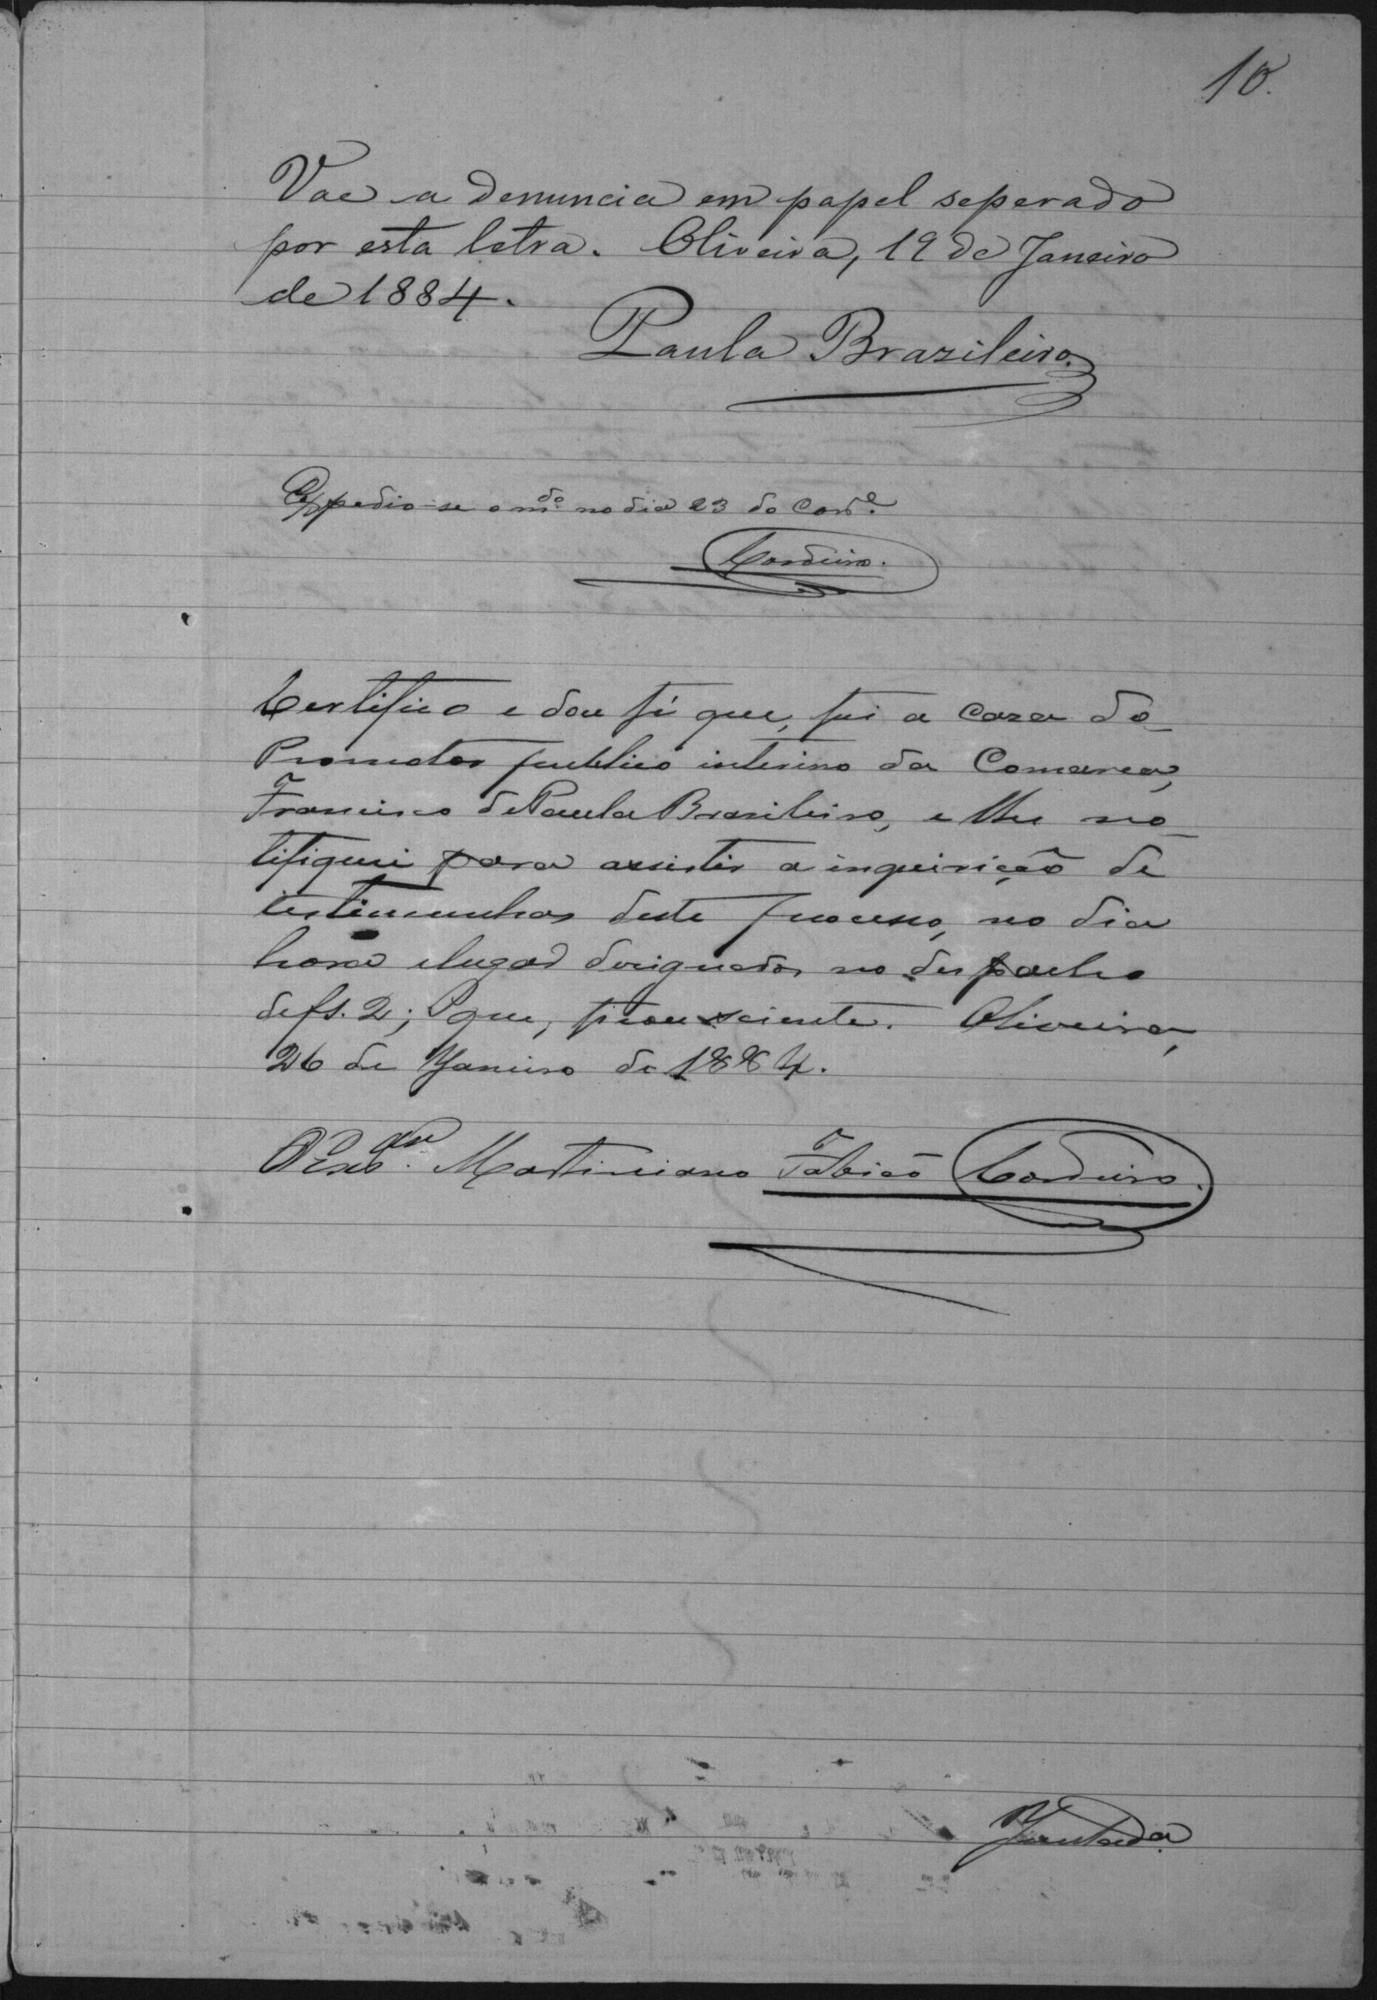 10.
Vae a denuncia em papel seperado
por esta letra. Oliveira, 19 de Janeiro
de 1884.
Paula Brazileiro.
Expedio-se o m.do no dia 23 do Corr.e
Cordeiro.
Certifico e dou fé que, fui a caza do
Promotor publico interino da Comarca,
Francisco de Paula Brasileiro, e lhe no-
tifiquei para assistir a inquirição de
testimunhas deste processo, no dia
hora e lugar designados no despacho
de fs. 2; do que, ficou sciente. Oliveira,
26 de Janeiro de 1884.
O Escr.am Martiniano Fabião Cordeiro.
Juntada